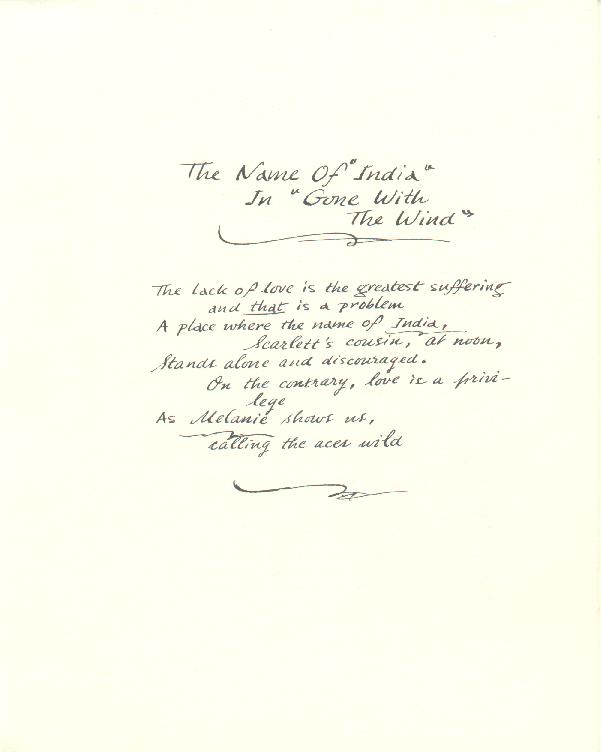 The Name Of "India"
In "Gone With
The Wind"
The lack of love is the greatest suffering
and that is a problem
A place where the name of India,
Scarlett's cousin, at noon,
Stands alone and discouraged.
On the contrary, love is a privi-
lege
As Melanie shows us,
calling the aces wild